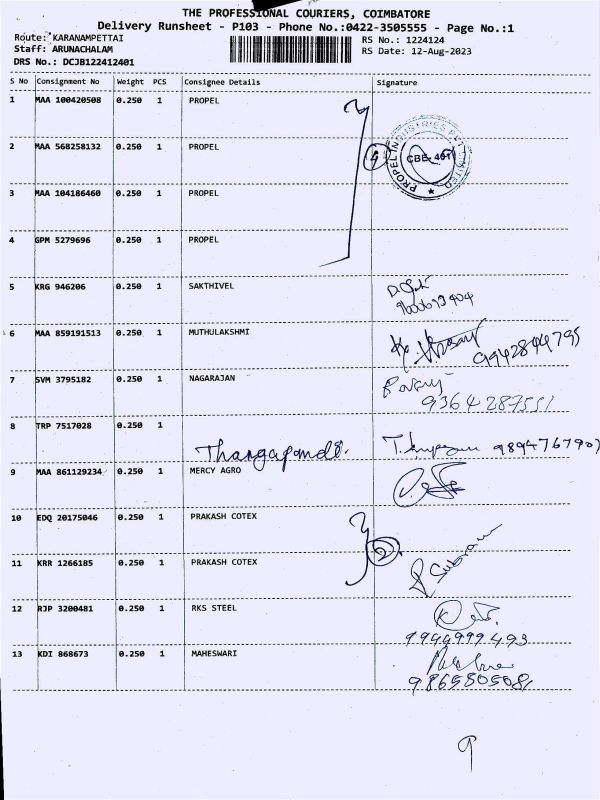 THE PROFESSIONAL COURIERS, COIMBATORE
Delivery Runsheet - P103 - Phone No.:0422-3505555 - Page No.:1
Route: KARANAMPETTAI
Staff: ARUNACHALAM
DRS No.: DCJB122412401
RS No.: 1224124
RS Date: 12-Aug-2023
S No Consignment No Weight PCS Consignee Details Signature
1 MAA 100420508 0.250 1 PROPEL
2 MAA 568258132 0.250 1 PROPEL
4
PROPEL INDUSTRIES PVT LIMITED
CBE-401
3 MAA 104186460 0.250 1 PROPEL
4 GPM 5279696 0.250 1 PROPEL
5 KRG 946206 0.250 1 SAKTHIVEL
6 MAA 859191513 0.250 1 MUTHULAKSHMI
9942844795
7 SVM 3795182 0.250 1 NAGARAJAN
9364287551
8 TRP 7517028 0.250 1
Thangapandi. 9894767907
9 MAA 861129234 0.250 1 MERCY AGRO
10 EDQ 20175046 0.250 1 PRAKASH COTEX
2
11 KRR 1266185 0.250 1 PRAKASH COTEX
12 RJP 3200481 0.250 1 RKS STEEL
9944999493
13 KDI 868673 0.250 1 MAHESWARI
9865505081
9